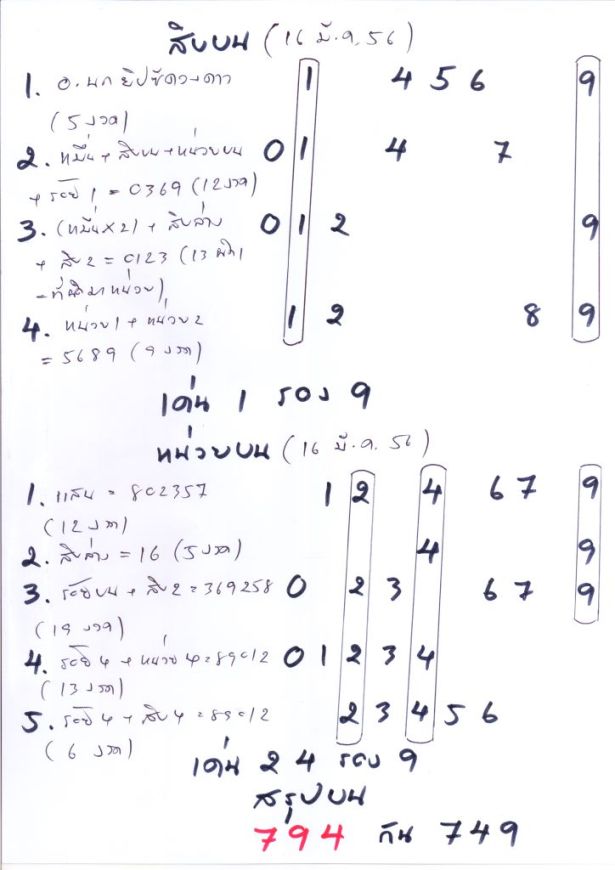 สิบบน (16 มี.ค. 56)
1. อ.นก ยิปซีดวงดาว 1 4 5 6 9
(5 งวด)
2. หมื่น + สิบบน + หน่วยบน 0 1 4 7
+ ร้อย 1 = 0369 (12 งวด)
3. (หมื่น x 2) + สิบล่าง 0 1 2 9
+ สิบ 2 = 0123 (13
4. หน่วย 1 + หน่วย 2 1 2 8 9
= 5689 (9 งวด)
เด่น 1 รอง 9
หน่วยบน (16 มี.ค. 56)
1. แสน = 802357 1 2 4 6 7 9
(12 งวด)
2. สิบล่าง = 16 (5 งวด) 4 9
3. ร้อยบน + สิบ 2 = 369258 0 2 3 6 7 9
(19 งวด)
4. ร้อย 4 + หน่วย 4 = 89012 0 1 2 3 4
(13 งวด)
5. ร้อย 4 + สิบ 4 = 89012 2 3 4 5 6
(6 งวด)
เด่น 2 4 รอง 9
สรุปบน
794 กัน 749